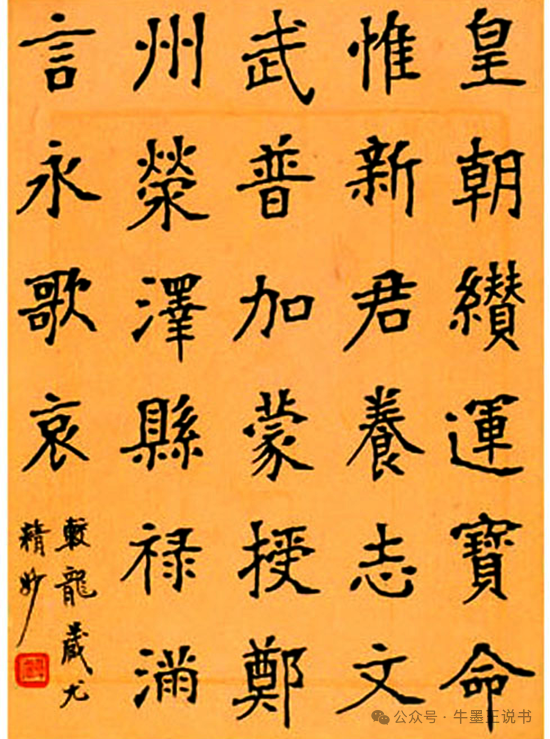 皇朝纘運寶命
惟新君養志文
武普加蒙授鄭
州滎澤縣禄滿
言永歌哀
龍藏尤
精妙
公众号·牛墨正说书